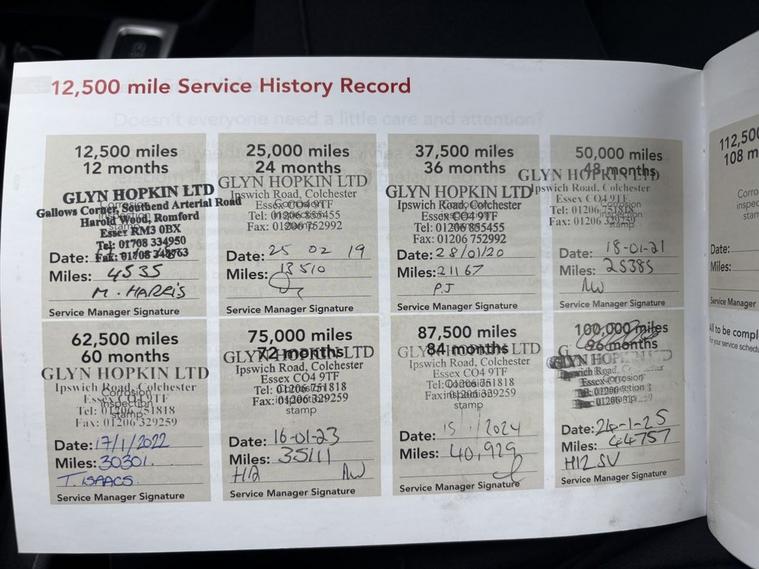 12,500 mile Service History Record
Doesn't everyone need a little care and attention?
12,500 miles
12 months
GLYN HOPKIN LTD
Gallows Corner, Southend Arterial Road
Harold Wood, Romford
Essex RM3 0BX
Tel: 01708 334950
Date: Fax: 01708 348763
Miles: 4535
M. HARRIS
Service Manager Signature
25,000 miles
24 months
GLYN HOPKIN LTD
Ipswich Road, Colchester
Essex CO4 9TF
Tel: 01206 855455
Fax: 01206 752992
Date: 25 02 19
Miles: 13510
Service Manager Signature
37,500 miles
36 months
GLYN HOPKIN LTD
Ipswich Road, Colchester
Essex CO4 9TF
Tel: 01206 855455
Fax: 01206 752992
Date: 28/01/20
Miles: 21167
PJ
Service Manager Signature
50,000 miles
48 months
GLYN HOPKIN LTD
Ipswich Road, Colchester
Essex CO4 9TF
Tel: 01206
Fax: 01206
Date: 18-01-21
Miles: 25385
Service Manager Signature
62,500 miles
60 months
GLYN HOPKIN LTD
Ipswich Road, Colchester
Essex CO4 9TF
Corrosion
inspection
stamp
Tel: 01206 751818
Fax: 01206 329259
Date: 17/1/2022
Miles: 30301
T. ISAACS
Service Manager Signature
75,000 miles
72 months
GLYN HOPKIN LTD
Ipswich Road, Colchester
Essex CO4 9TF
Tel: 01206 751818
Fax: 01206 329259
stamp
Date: 16-01-23
Miles: 35111
H12
Service Manager Signature
87,500 miles
84 months
GLYN HOPKIN LTD
Ipswich Road, Colchester
Essex CO4 9TF
Tel: 01206 751818
Fax: 01206 329259
stamp
Date: 15 1/2024
Miles: 40,929
Service Manager Signature
100,000 miles
96 months
GLYN HOPKIN LTD
Road,
Essex
01206
01206
Date: 24-1-25
Miles: 44757
H12 SV
Service Manager Signature
112,50
108 m
Corro
inspec
stam
Date:
Miles:
Service Manager
All to be compl
for your service schedu